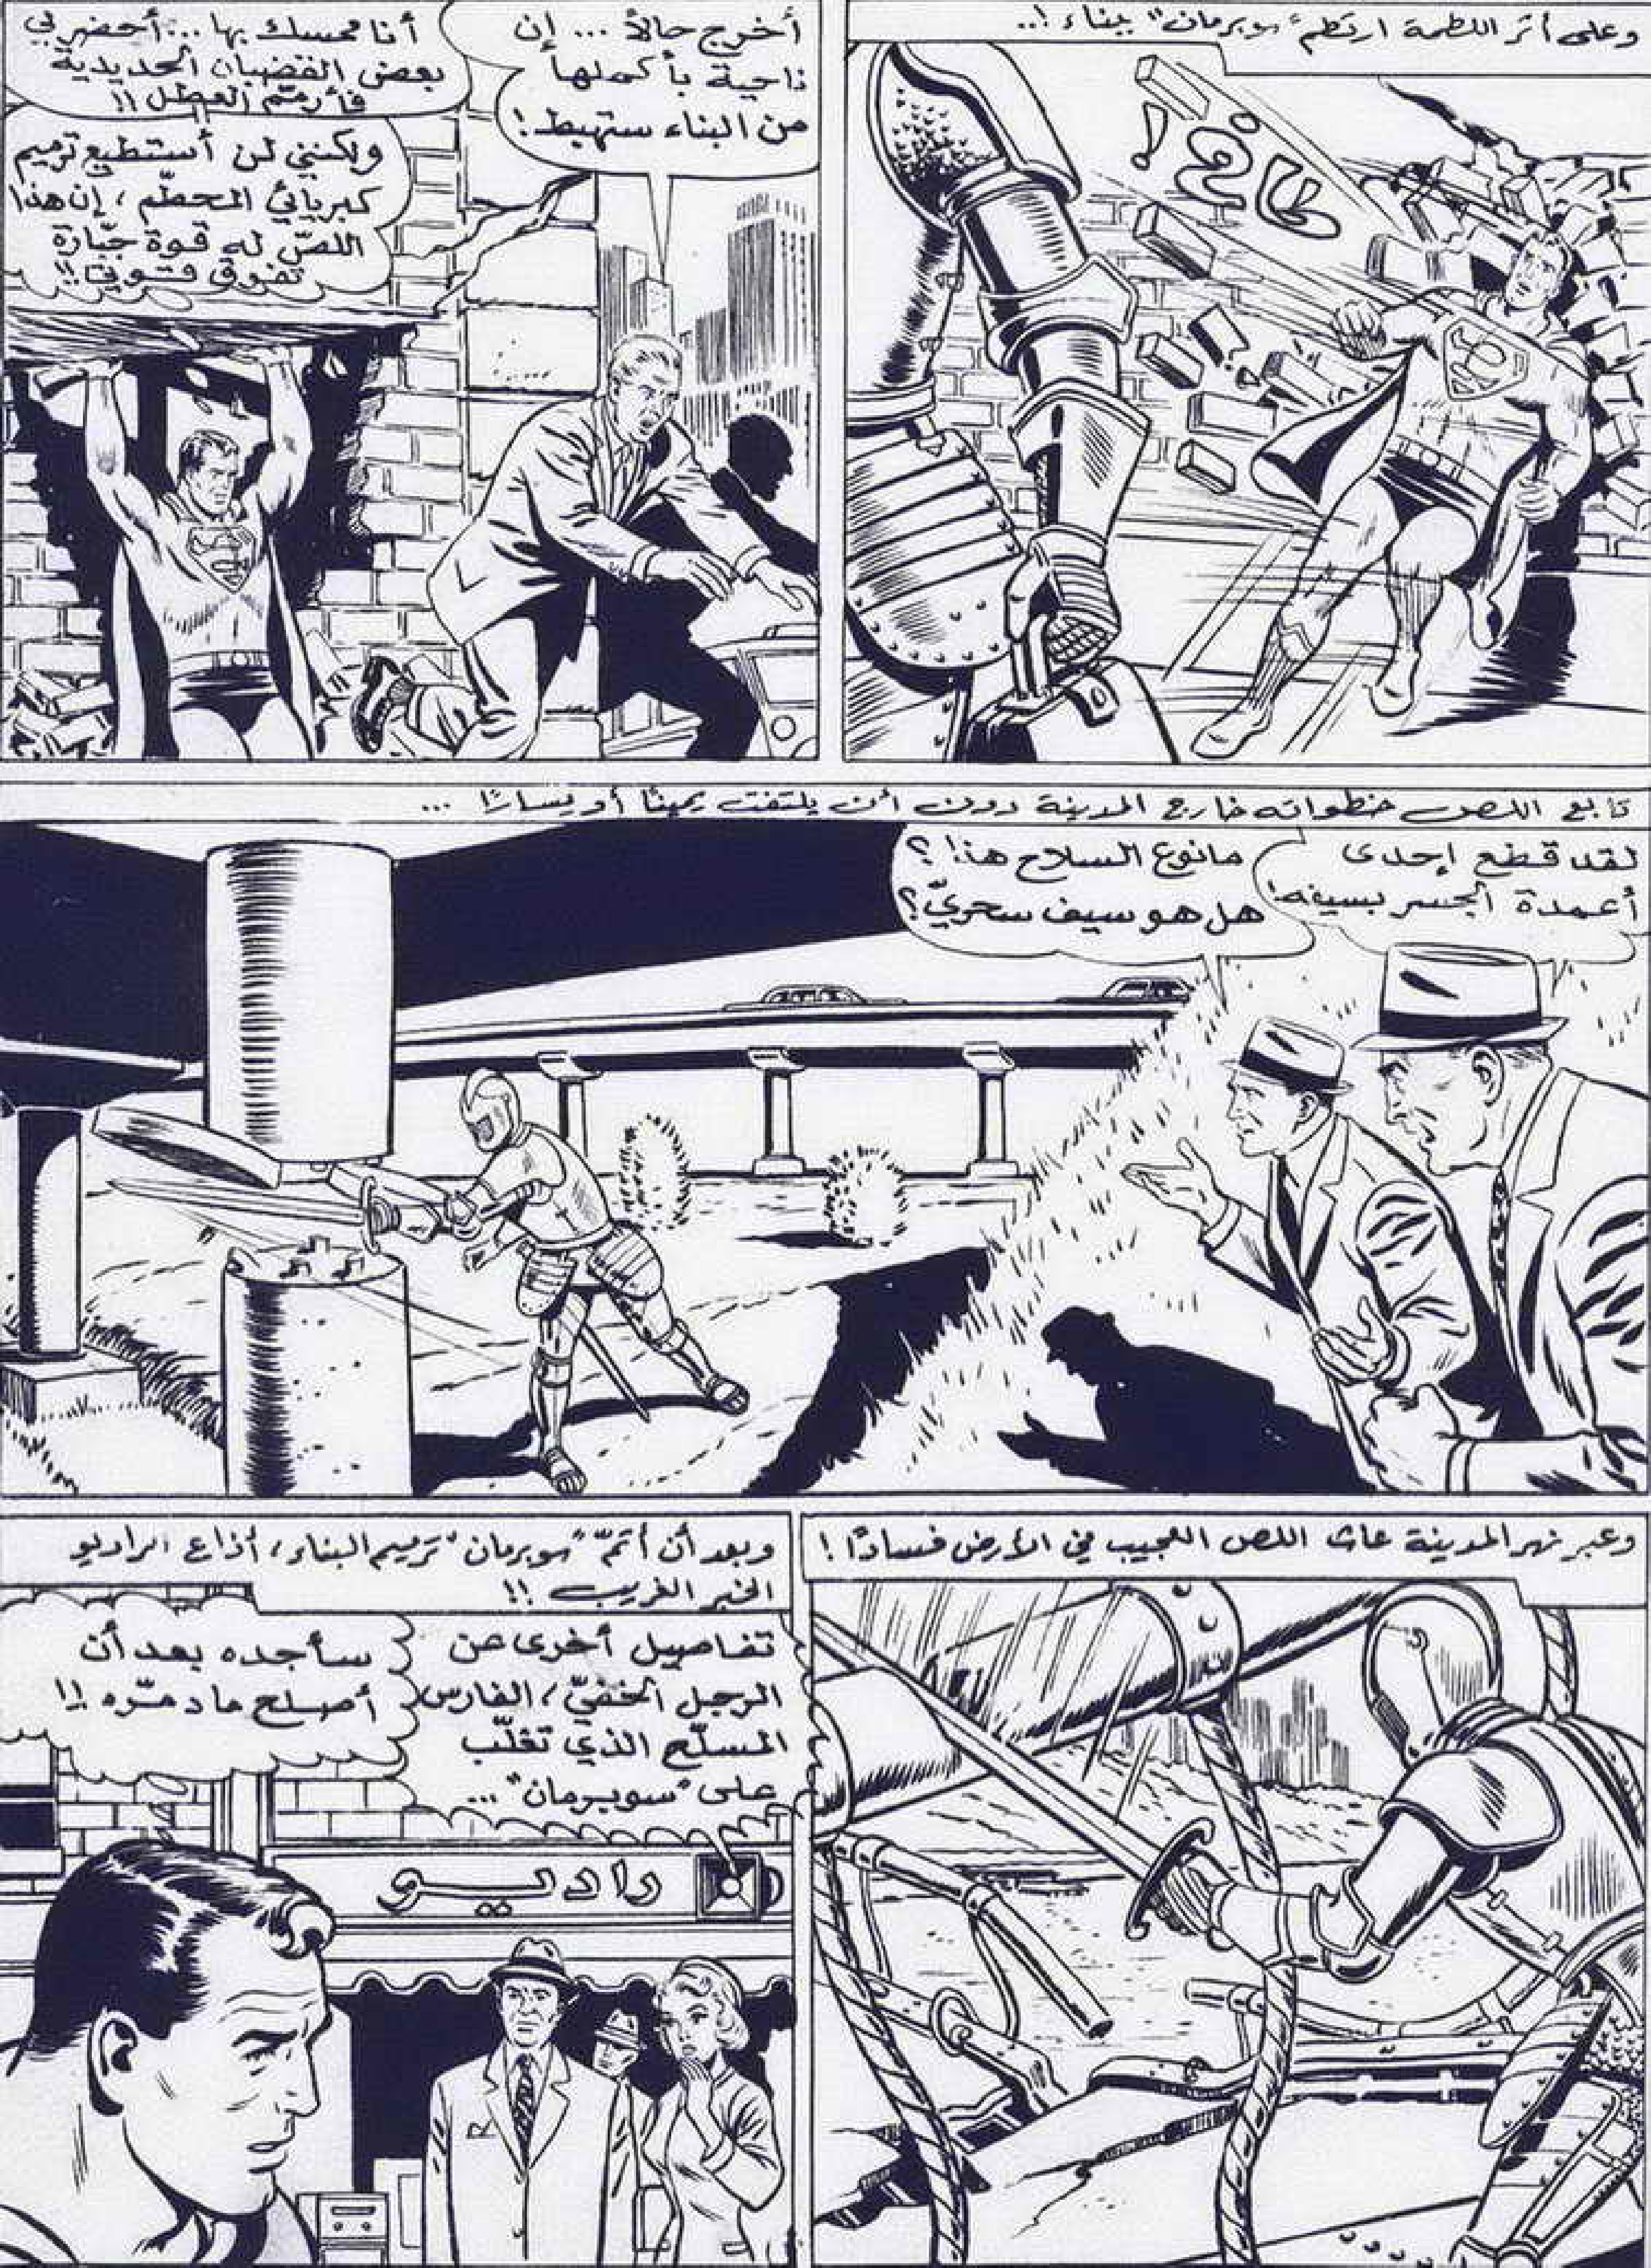 وعلى أثر اللطمة ارتطم "سوبرمان" ببناء!..
أخرج حالاً ... إن
ناحية بأكملها
من البناء ستهبط!
أنا ممسك بها ... أحضر لي
بعض القضبان الحديدية
فأرمّم العطل !!
ولكنني لن أستطيع ترميم
كبريائي المحطّم ، إن هذا
اللصّ له قوة جبّارة
تفوق قوتي!!
تابع اللص خطواته خارج المدينة دون أن يلتفت يمينًا أو يسارًا ...
لقد قطع إحدى
أعمدة الجسر بسيفه!
ما نوع السلاح هذا!؟
هل هو سيف سحريّ؟
وعبر نهر المدينة عاث اللص العجيب في الأرض فسادًا !
وبعد أن أتمّ "سوبرمان" ترميم البناء ، أذاع الراديو
الخبر الغريب !!
تفاصيل أخرى عن
الرجل الخفيّ ، الفارس
المسلّح الذي تغلّب
على "سوبرمان" ...
سأجده بعد أن
أصلح ما دمّره !!
راديو